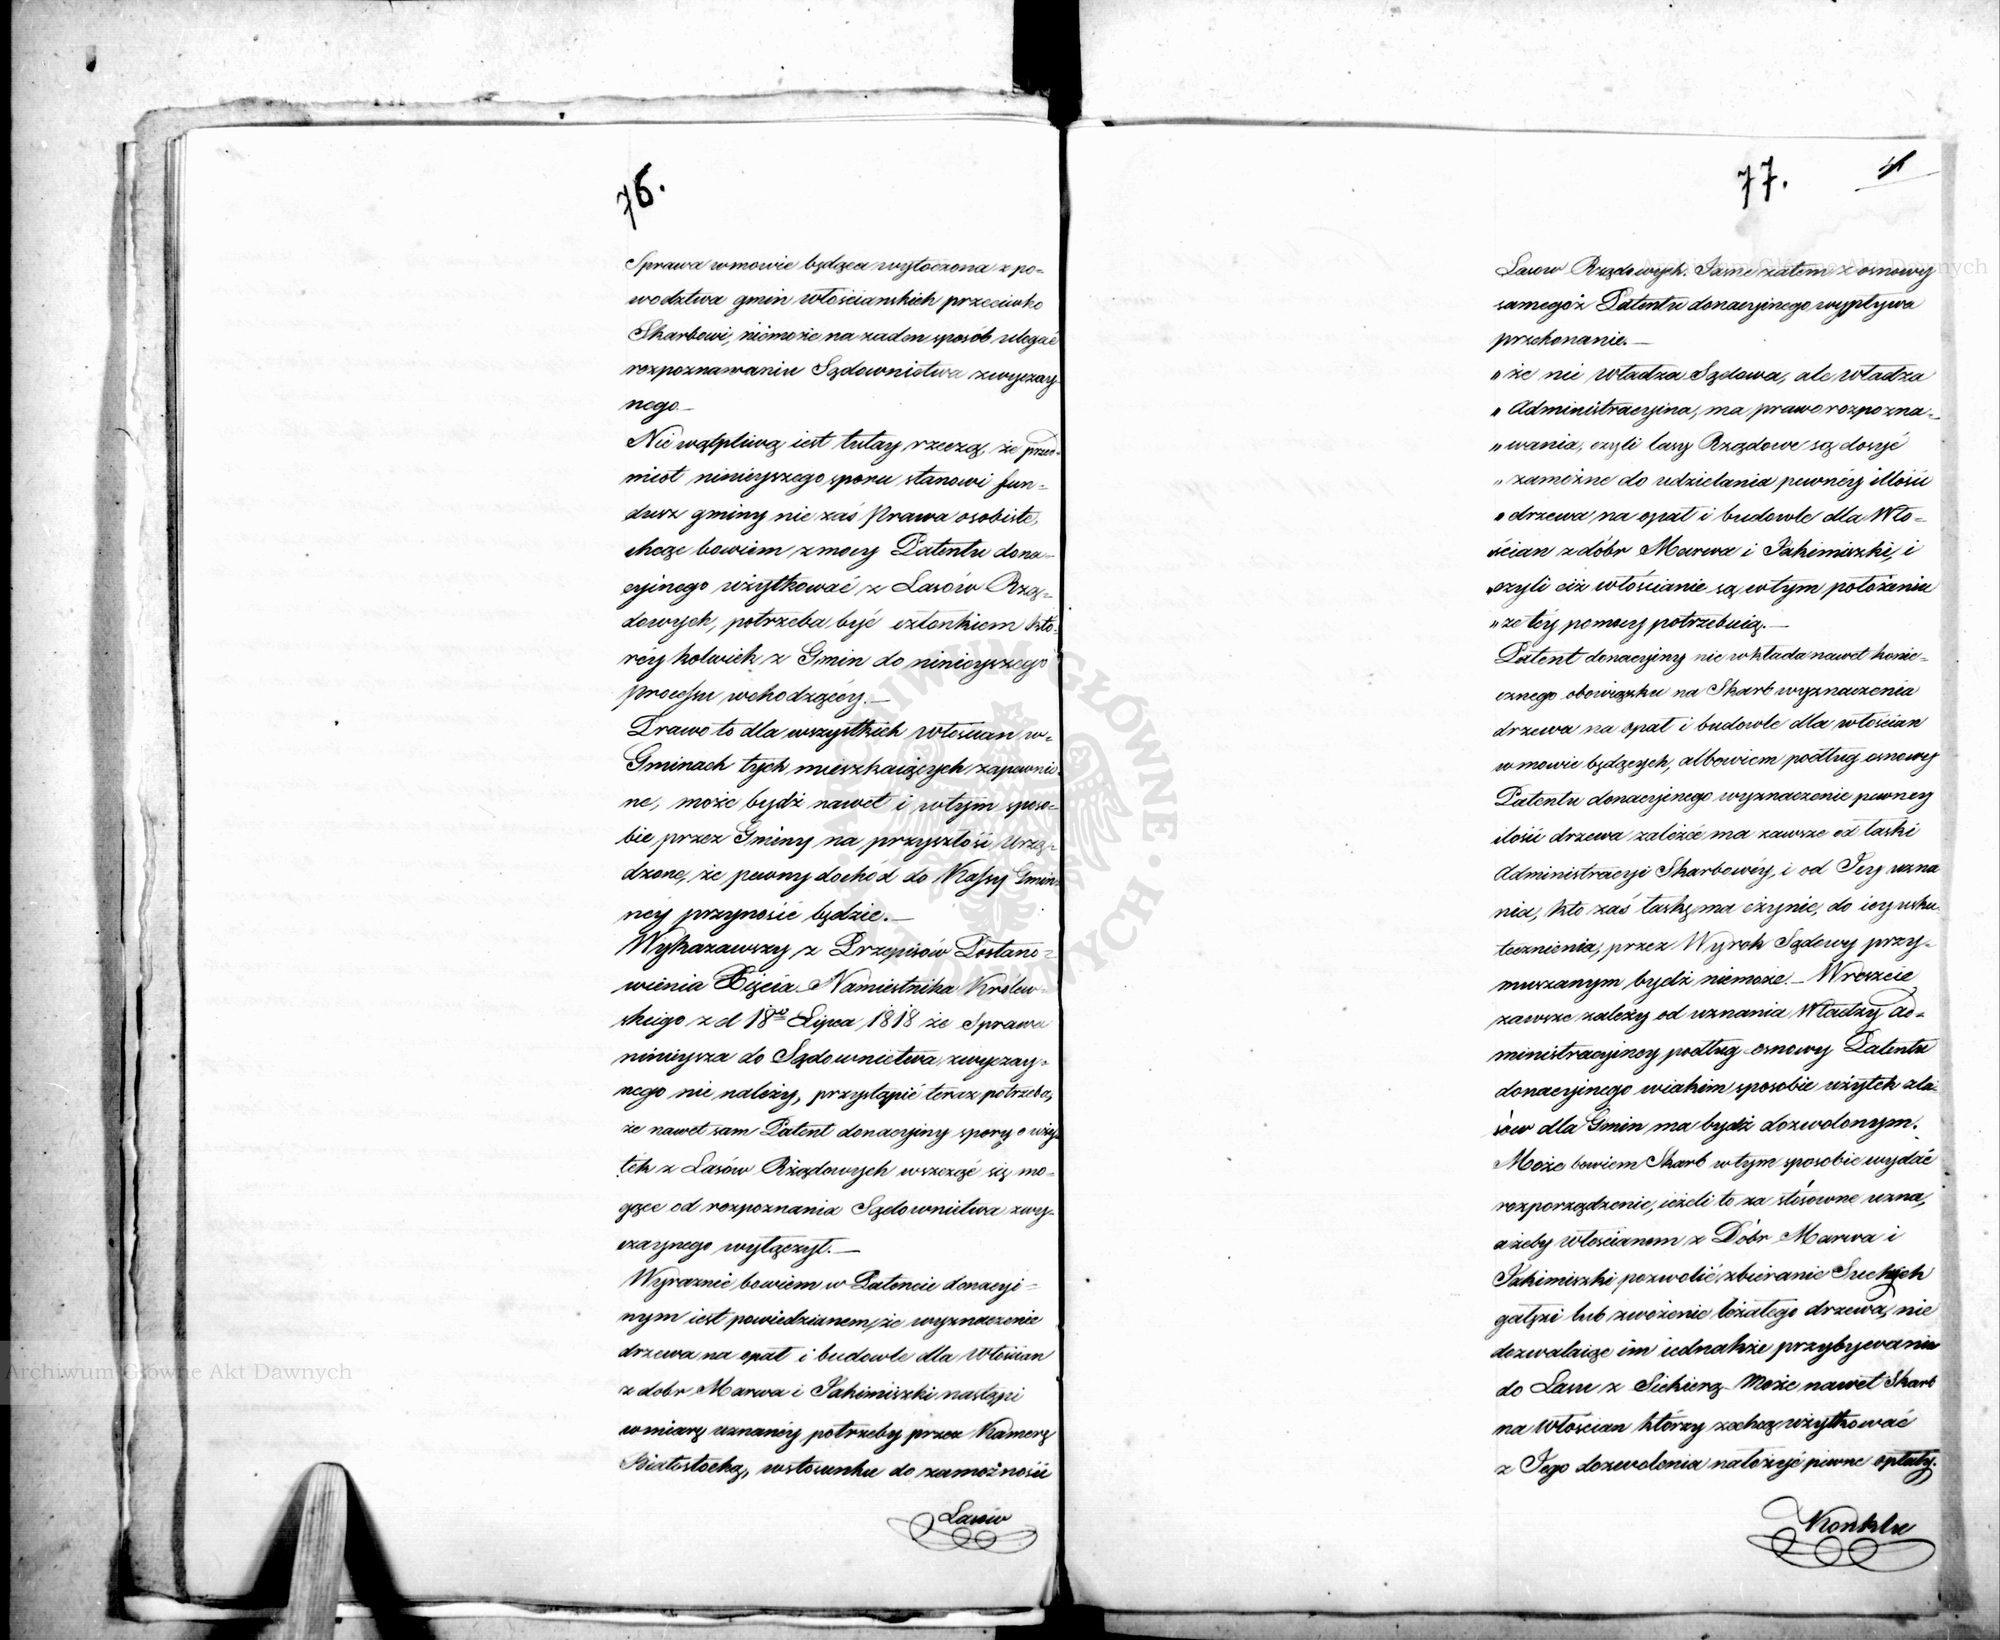 76.
Sprawa w mowie będąca wytoczona z po-
wodztwa gmin włościanskich przeciwko
Skarbowi, niemoże na żaden sposób ulegać
rozpoznawaniu Sądownictwa zwyczay-
nego.—
Nie wątpliwą iest tutay rzeczą, że przed-
miot ninieyszego sporu stanowi fun-
dusz gminy nie zaś Prawa osobiste,
chcąc bowiem z mocy Patentu dona-
cyinego użytkować z Lasów Rzą-
dowych, potrzeba być członkiem któ-
réy kolwiek z Gmin do ninieyszego
processu wchodzącéy.—
Prawo to dla wszystkich włościan w-
Gminach tych mieszkaiących zapewnio-
ne, może bydź nawet i w tym sposo-
bie przez Gminy na przyszłość urzą-
dzone, że pewny dochód do Kassy Gmin-
néy przynosić będzie.—
Wykazawszy z Przepisów Postano-
wienia Xięcia Namiestnika Królew-
skiego z d 18go Lipca 1818 że Sprawa
ninieysza do Sądownictwa zwyczay-
nego nie należy, przystąpić teraz potrzeba,
że nawet sam Patent donacyiny spory o uży-
tek z Lasów Rządowych wszcząć się mo-
gące od rozpoznania Sądownictwa zwy-
czaynego wyłączył.—
Wyraznie bowiem w Patencie donacyi-
nym iest powiedzianem, że wyznaczenie
drzewa na opał i budowle dla Włościan
z dobr Marwa i Jakimiszki nastąpi
w miarę uznanéy potrzeby przez Kamerę
Białostocką, w stosunku do zamożności
Lasów
77.
Lasow Rządowych. Jasne zatem z osnowy
samegoż Patentu donacyinego wypływa
przekonanie.—
„ że nie władza Sądowa, ale władza
„ Administracyina, ma prawo rozpozna-
„ wania, czyli lasy Rządowe są dosyć
„ zamożne do udzielania pewnéy illości
„ drzewa na opał i budowle dla Wło-
ścian z dóbr Marwa i Jakimiszki, i
„ czyli ciż włościanie są w tym położeniu
„ że téy pomocy potrzebuią.—
Patent donacyiny nie wkłada nawet konie-
cznego obowiązku na Skarb wyznaczenia
drzewa na opał i budowle dla włościan
w mowie będących, albowiem podług osnowy
Patentu donacyinego wyznaczenie pewney
ilości drzewa zależéć ma zawsze od łaski
Administracyi Skarbowéy, i od Jey uzna
nia, kto zaś łaskę ma czynić, do iey usku-
tecznienia, przez Wyrok Sądowy przy-
muszanym bydź niemoże.— Wreszcie
zawsze zależy od uznania Władzy Ad-
ministracyiney podług osnowy Patentu
donacyinego w iakim sposobie użytek z la-
sów dla Gmin ma bydź dozwolonym.
Może bowiem Skarb w tym sposobie wydać
rozporządzenie, ieżeli to za stósowne uzna,
ażeby włościanom z Dóbr Marwa i
Jakimiszki pozwolić zbieranie Suchych
gałęzi lub zwożenie leżałego drzewa, nie
dozwalaiąc im iednakże przybywania
do Lasu z Siekierą Może nawet Skarb
na włościan którzy zechcą użytkować
z Jego dozwolenia nałożyć pewne opłaty.
Konklu
Archiwum Główne Akt Dawnych
Archiwum Główne Akt Dawnych